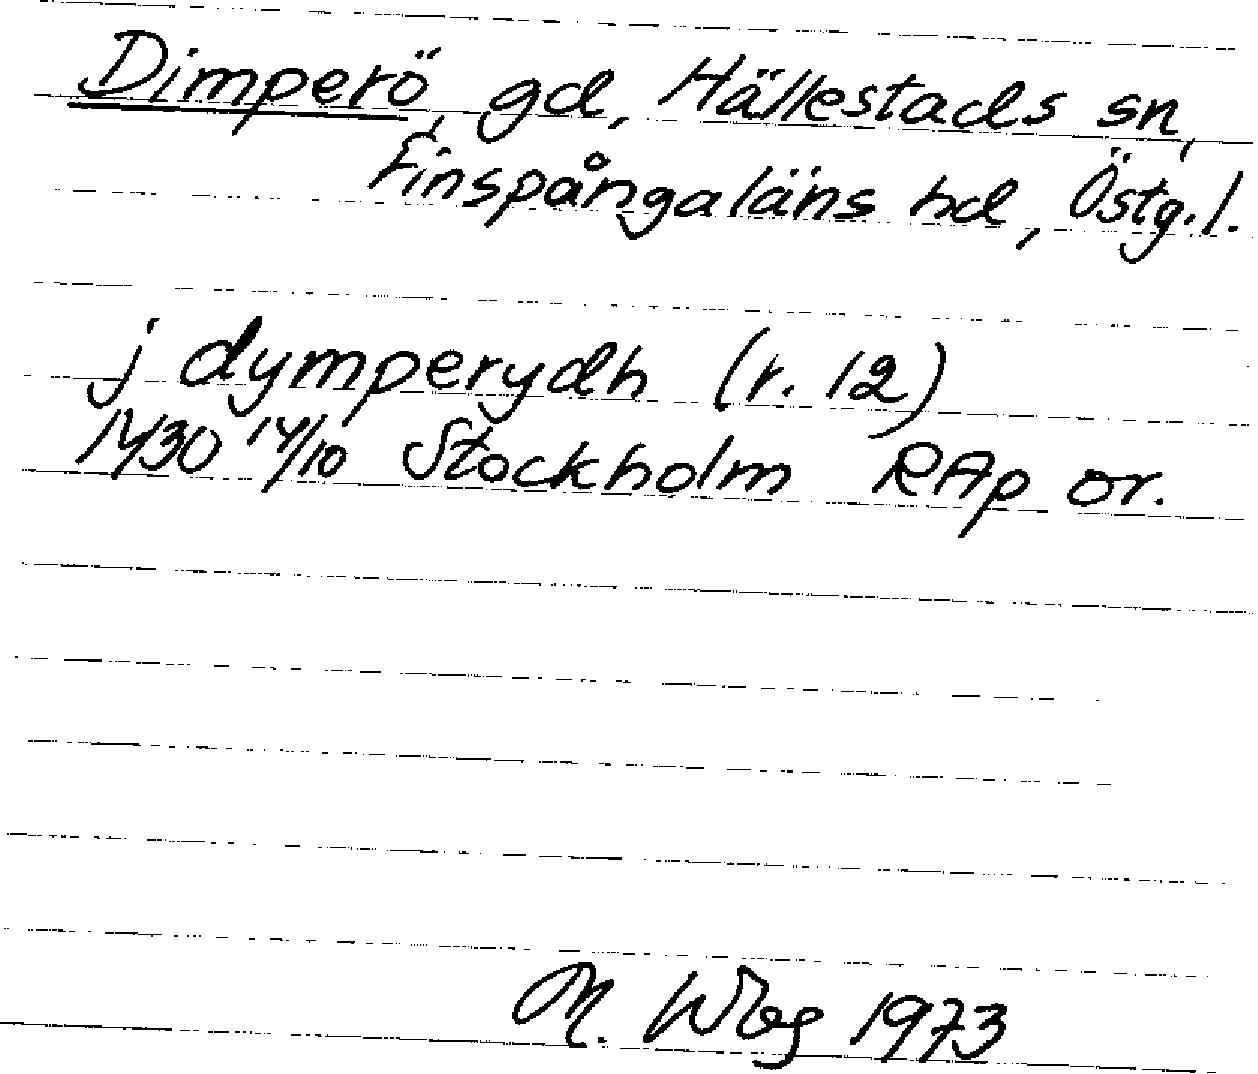 Dimperö, gd, Hällestads sn,
Finspångaläns hd, Östg.l.
j dymperydh (r. 12)
1430 14/10 Stockholm RAp or.
M. Wbg 1973